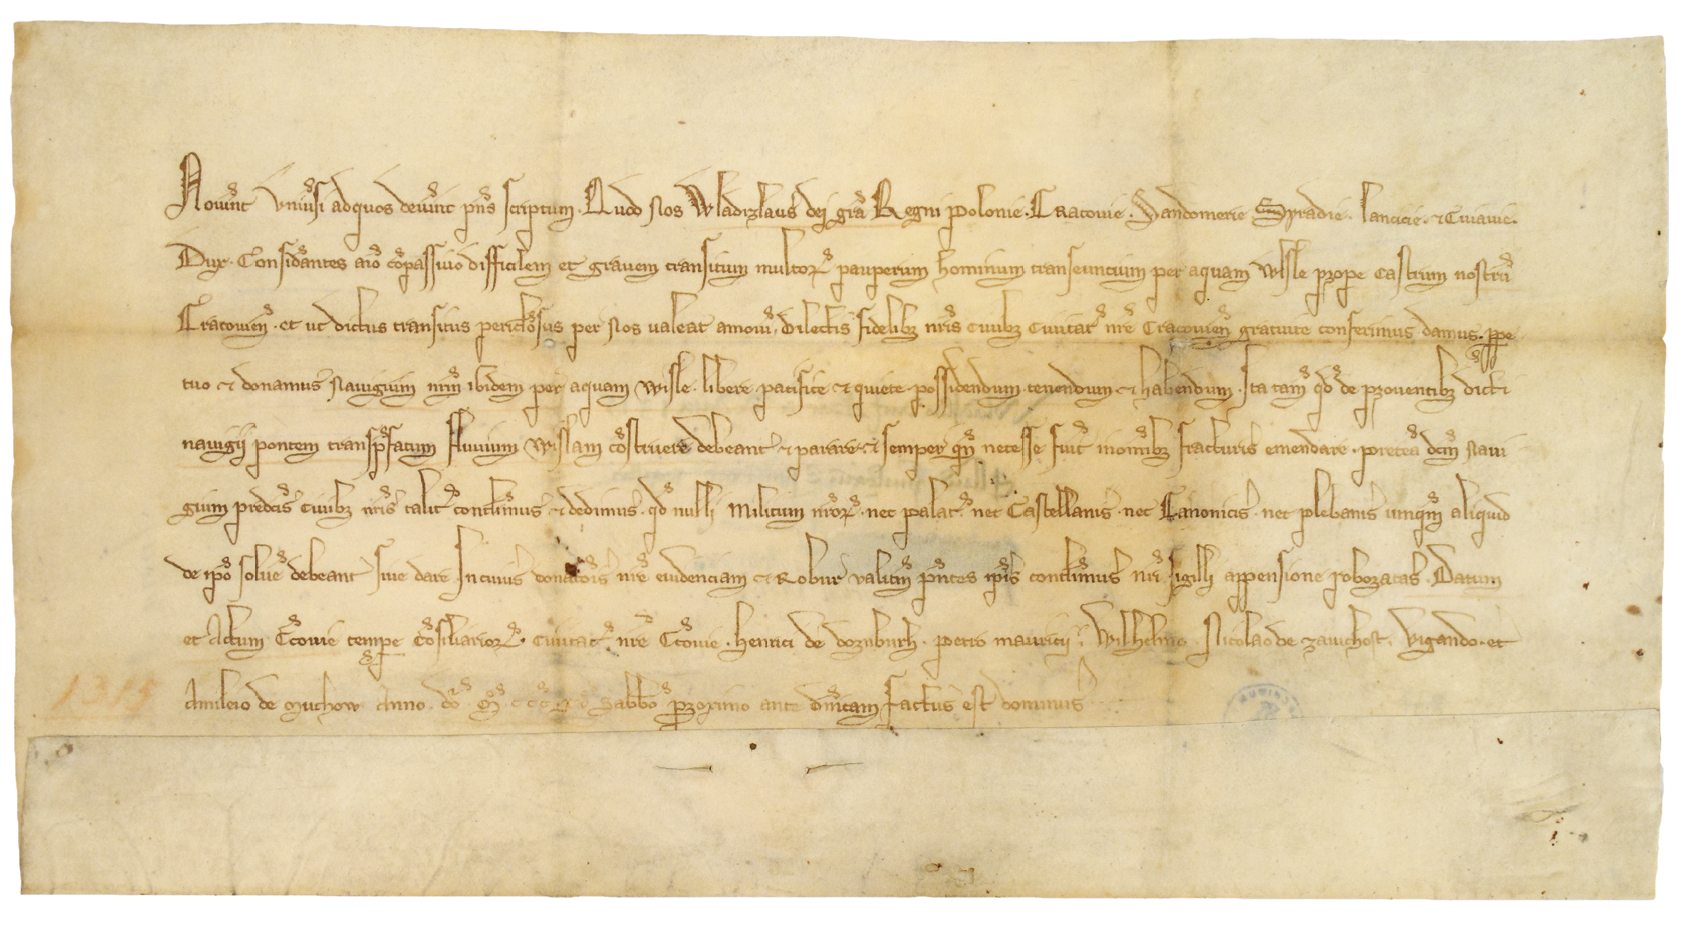 Nouerint vniuersi ad quos deuenerit pn̄s scriptum. Quod Nos Wladizlaus dei gr̄a Regni Polonie. Cracouie. Sandomerie Syradie. Lancicie. et Cuiauie.
Dux. Considerantes aīo cōpassiuo difficilem et grauem transitum multor̄ pauperum hominum transeuncium per aquam Wisle prope Castrum nostrū
Cracouien̄. et ut dictus transitus periclōsus per Nos ualeat amoueri, dilectis fidelibz nr̄is Ciuibz Ciuitat̄ nr̄e Cracouien̄ gratuite conferimus damus. ꝑpe
tuo et donamus Nauigium nr̄m ibidem per aquam Wisle. libere. pacifice et quiete. possidendum. tenendum et habendum. Ita tam̄ qd̄ de prouentibz dicti
nauigii pontem trans p̄fatum fluuium Wislam cōstruere debeant et parare et semper qn̄ necesse fuerit in omibz fracturis emendare. pretea dc̄m Naui
gium predc̄is Ciuibz nr̄is talit̄ contulimus et dedimus. qd̄ nulli Militum nr̄or̄. nec palat̄. nec Castellanis. nec Canonicis. nec plebanis umqm̄ aliquid
de ip̄o soluē debeant siue dare. In cuius donacōis nr̄e euidenciam et Robur ualitur̄ p̄ntes ip̄is contulimus nr̄i sigilli appensione roboratas. Datum
et Actum Cͣcouie tempe cōsiliarior̄. Ciuitat̄ nr̄e Cͣcouie. Henrici de
Petro Mauricii. Wilhelmo. Nicolao de Zauichost. Wigando. et
de Muchow Anno. dō. Mͦ. CCCͦ Sabbō proximo ante dn̄icam factus est dominus
1315